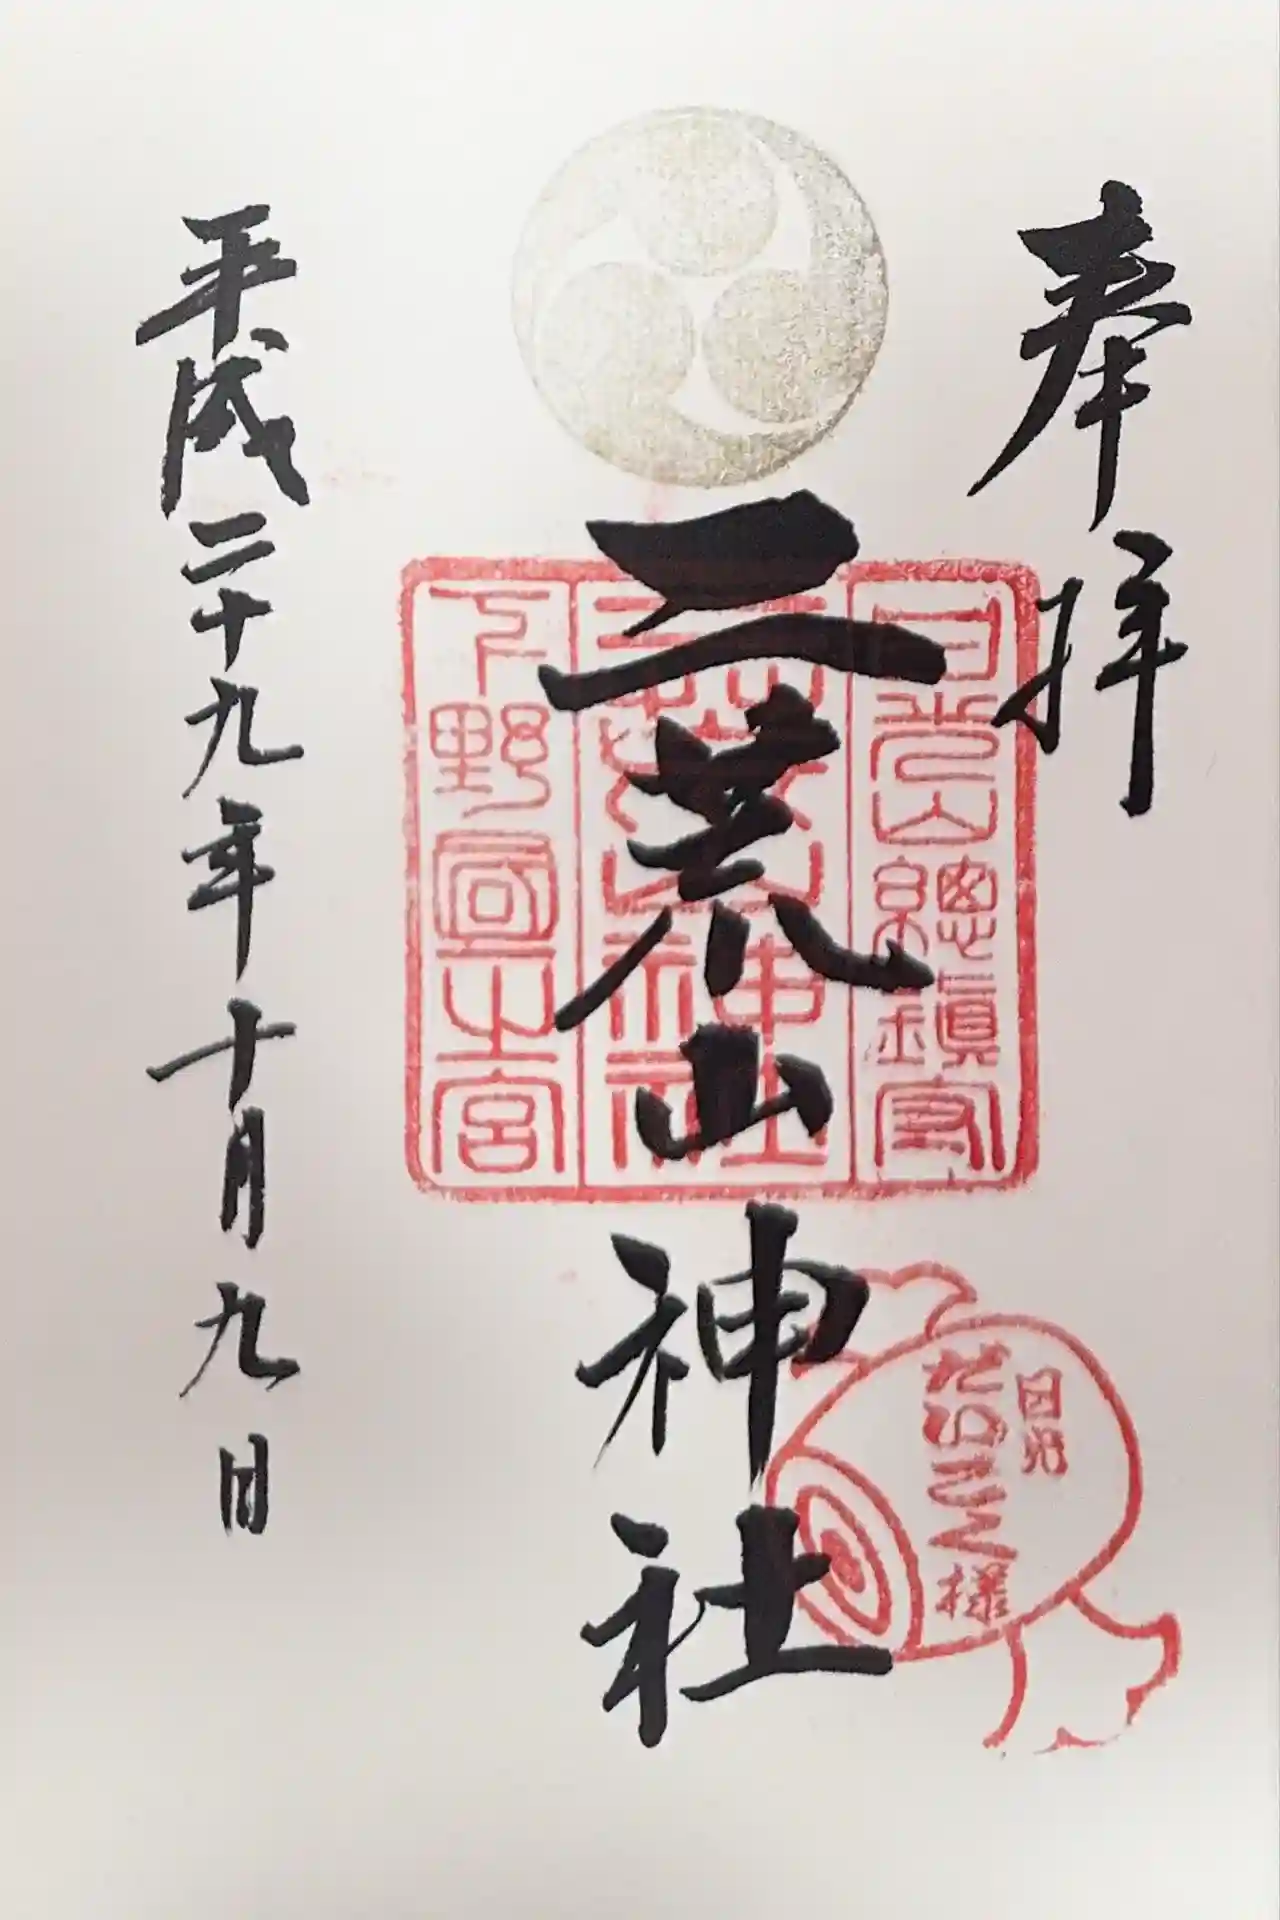 奉拝
日光山總鎮守
二荒山神社
二荒山神社
下野國一之宮
日光
だいこく様
平成二十九年十月九日